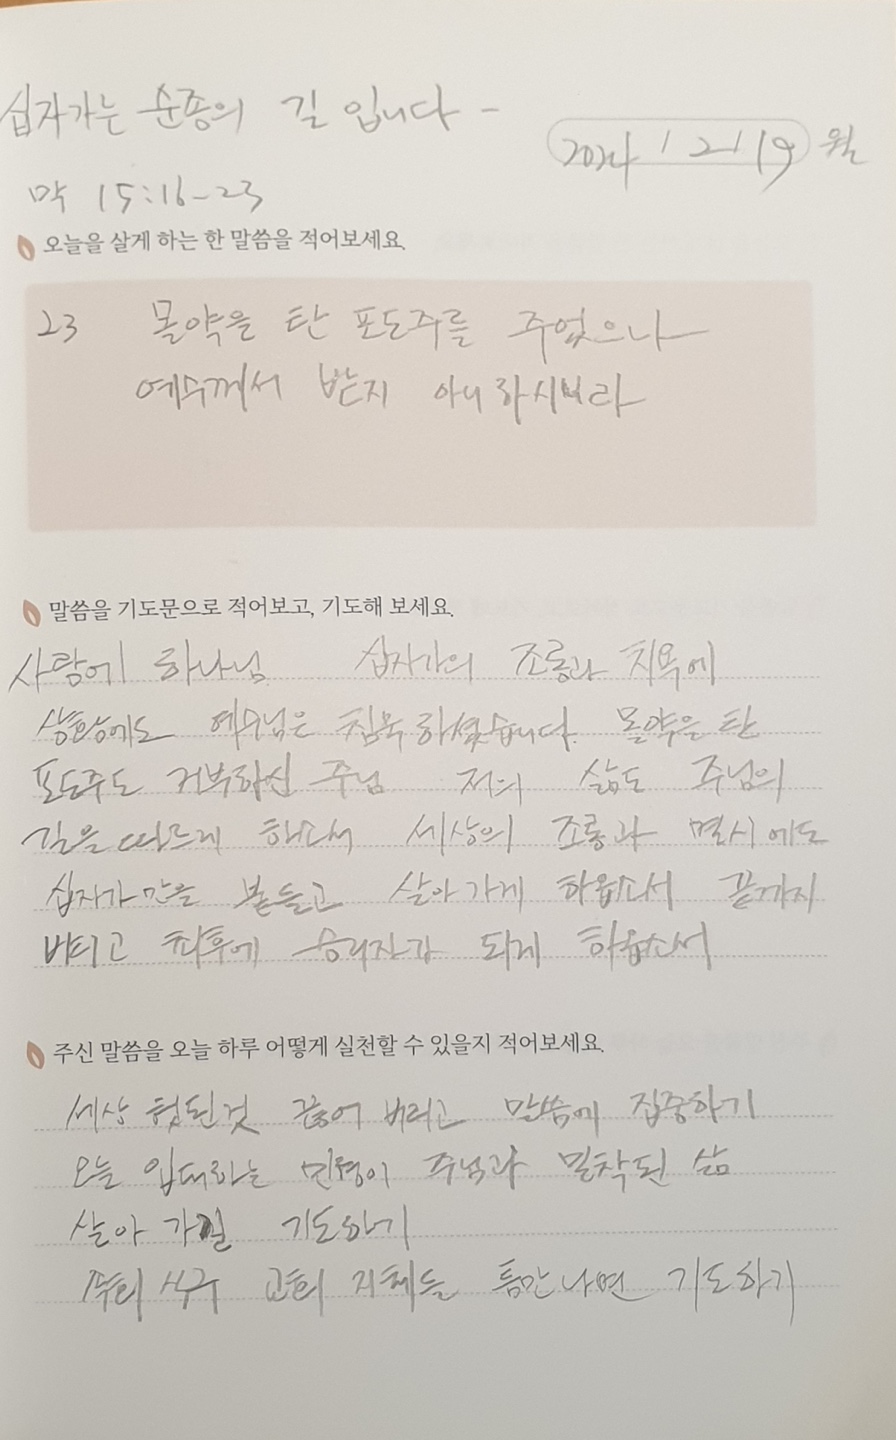 십자가는 순종의 길 입니다 -
2024 / 2 / 19 월
막 15:16-23
오늘을 살게 하는 한 말씀을 적어보세요.
23 몰약을 탄 포도주를 주었으나
예수께서 받지 아니하시니라
말씀을 기도문으로 적어보고, 기도해 보세요.
사랑에 하나님 십자가의 조롱과 치욕에
상황에도 예수님은 침묵하셨습니다. 몰약을 탄
포도주도 거부하신 주님 저의 삶도 주님의
길을 따르게 하소서 세상의 조롱과 멸시에도
십자가만을 붙들고 살아가게 하옵소서 끝까지
버티고 최후에 승리자가 되게 하옵소서
주신 말씀을 오늘 하루 어떻게 실천할 수 있을지 적어보세요.
세상 헛된것 끊어 버리고 말씀에 집중하기
오늘 입대하는 민형이 주님과 밀착된 삶
살아 가길 기도하기
식구 교회 지체들 틈만나면 기도하기